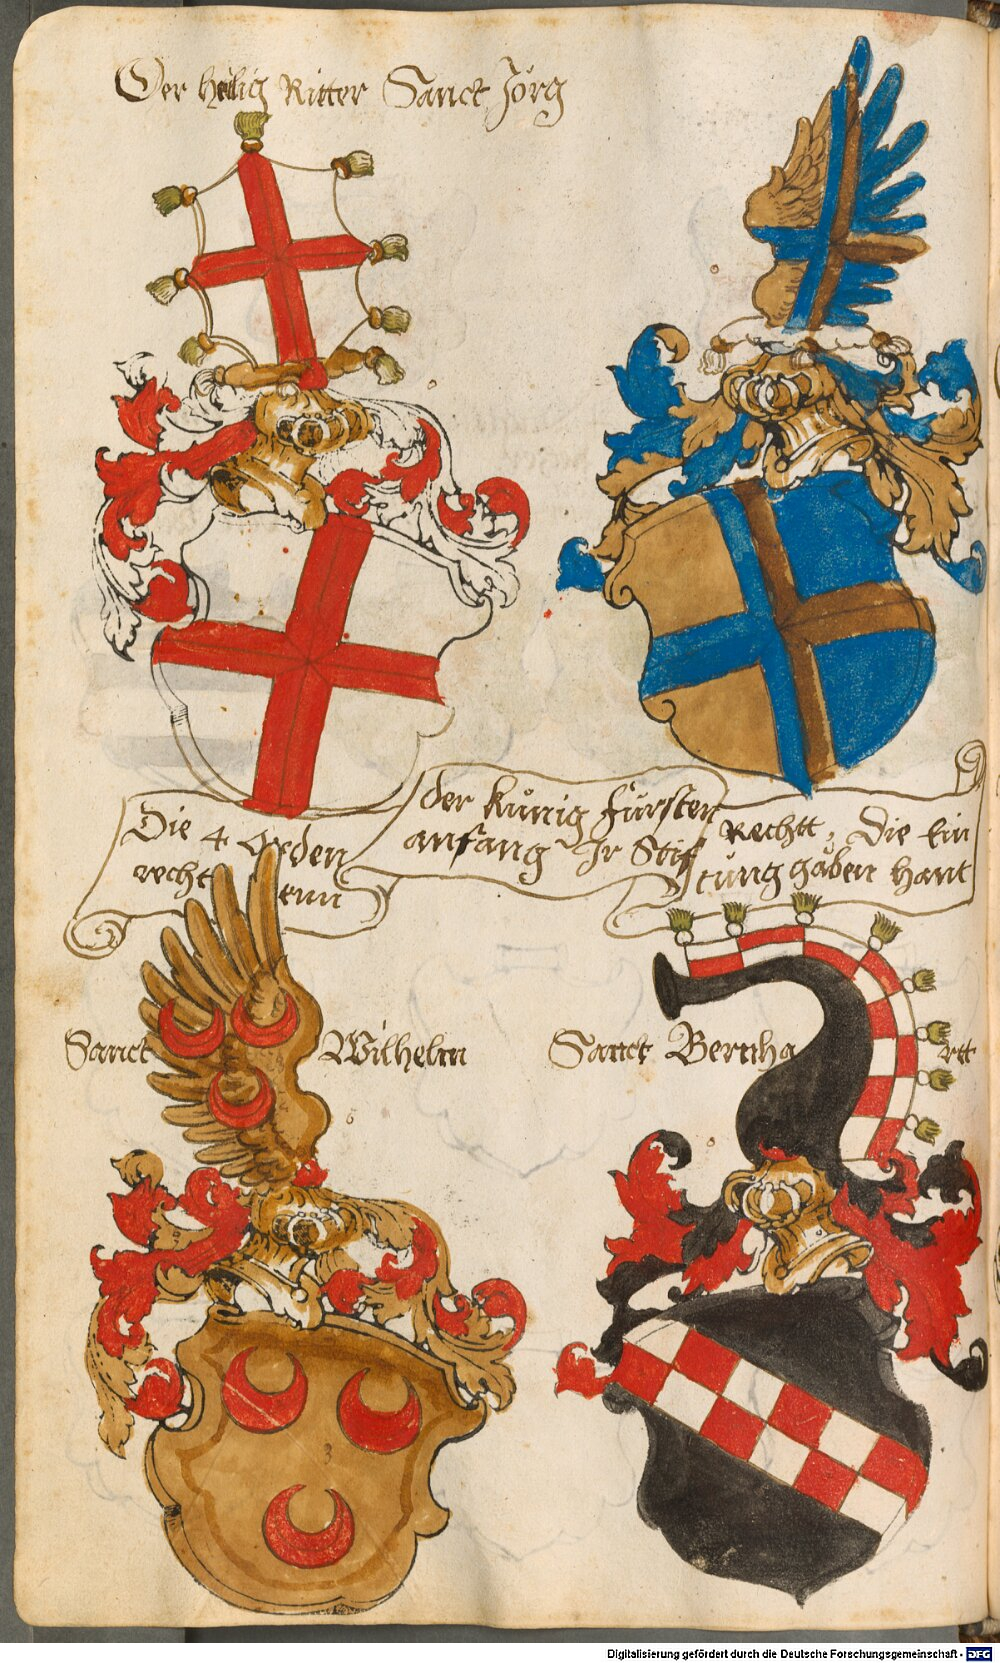 Der heilig Ritter Sanct Jörg
Die 4 Orden der Künig Fürsten Rechtt, Die Ein
recht enn anfang Ir Stif tung gäben hant
Sanct Wilhelm
Sanct Bernha rtt
3
Digitalisierung gefördert durch die Deutsche Forschungsgemeinschaft - DFG